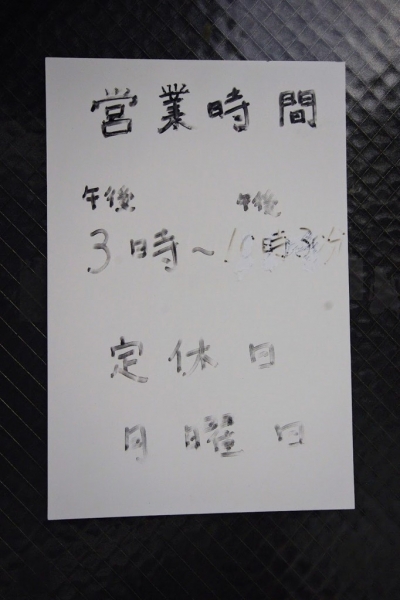 営業時間
午後 午後
3時～ 時30分
定休日
月曜日